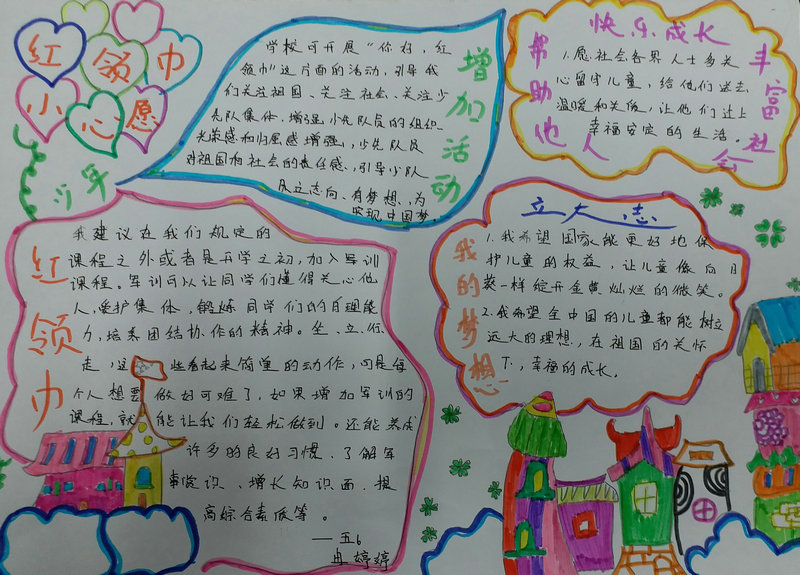 红领巾
小心愿
少年
学校可开展“你好,红
领巾”这方面的活动,引导我
们关注祖国、关注社会、关注少
先队集体,增强小先队员的组织
光荣感和归属感增强,少先队员
对祖国和社会的责任感,引导小队
员立志向、有梦想,为
实现中国梦。
增加活动
快乐成长
帮助他人
丰富社会
1.愿社会各界人士多关
心留守儿童,给他们送去
温暖和关怀,让他们过上
幸福安定的生活。
红领巾
我建议在我们规定的
课程之外或者是开学之初,加入军训
课程。军训可以让同学们懂得关心他
人,爱护集体,锻炼同学们的自理能
力,培养团结协作的精神。坐、立、行、
走,这些看起来简单的动作,可是每
个人想要做好可难了,如果增加军训的
课程,就能让我们轻松做到。还能养成
许多的良好习惯、了解军
事常识、增长知识面、提
高综合素质等。
—五6
冉婷婷
立大志
我的梦想
1.我希望国家能更好地保
护儿童的权益,让儿童像向日
葵一样绽开金黄灿烂的微笑。
2.我希望全中国的儿童都能树立
远大的理想,在祖国的关怀
下,幸福的成长。